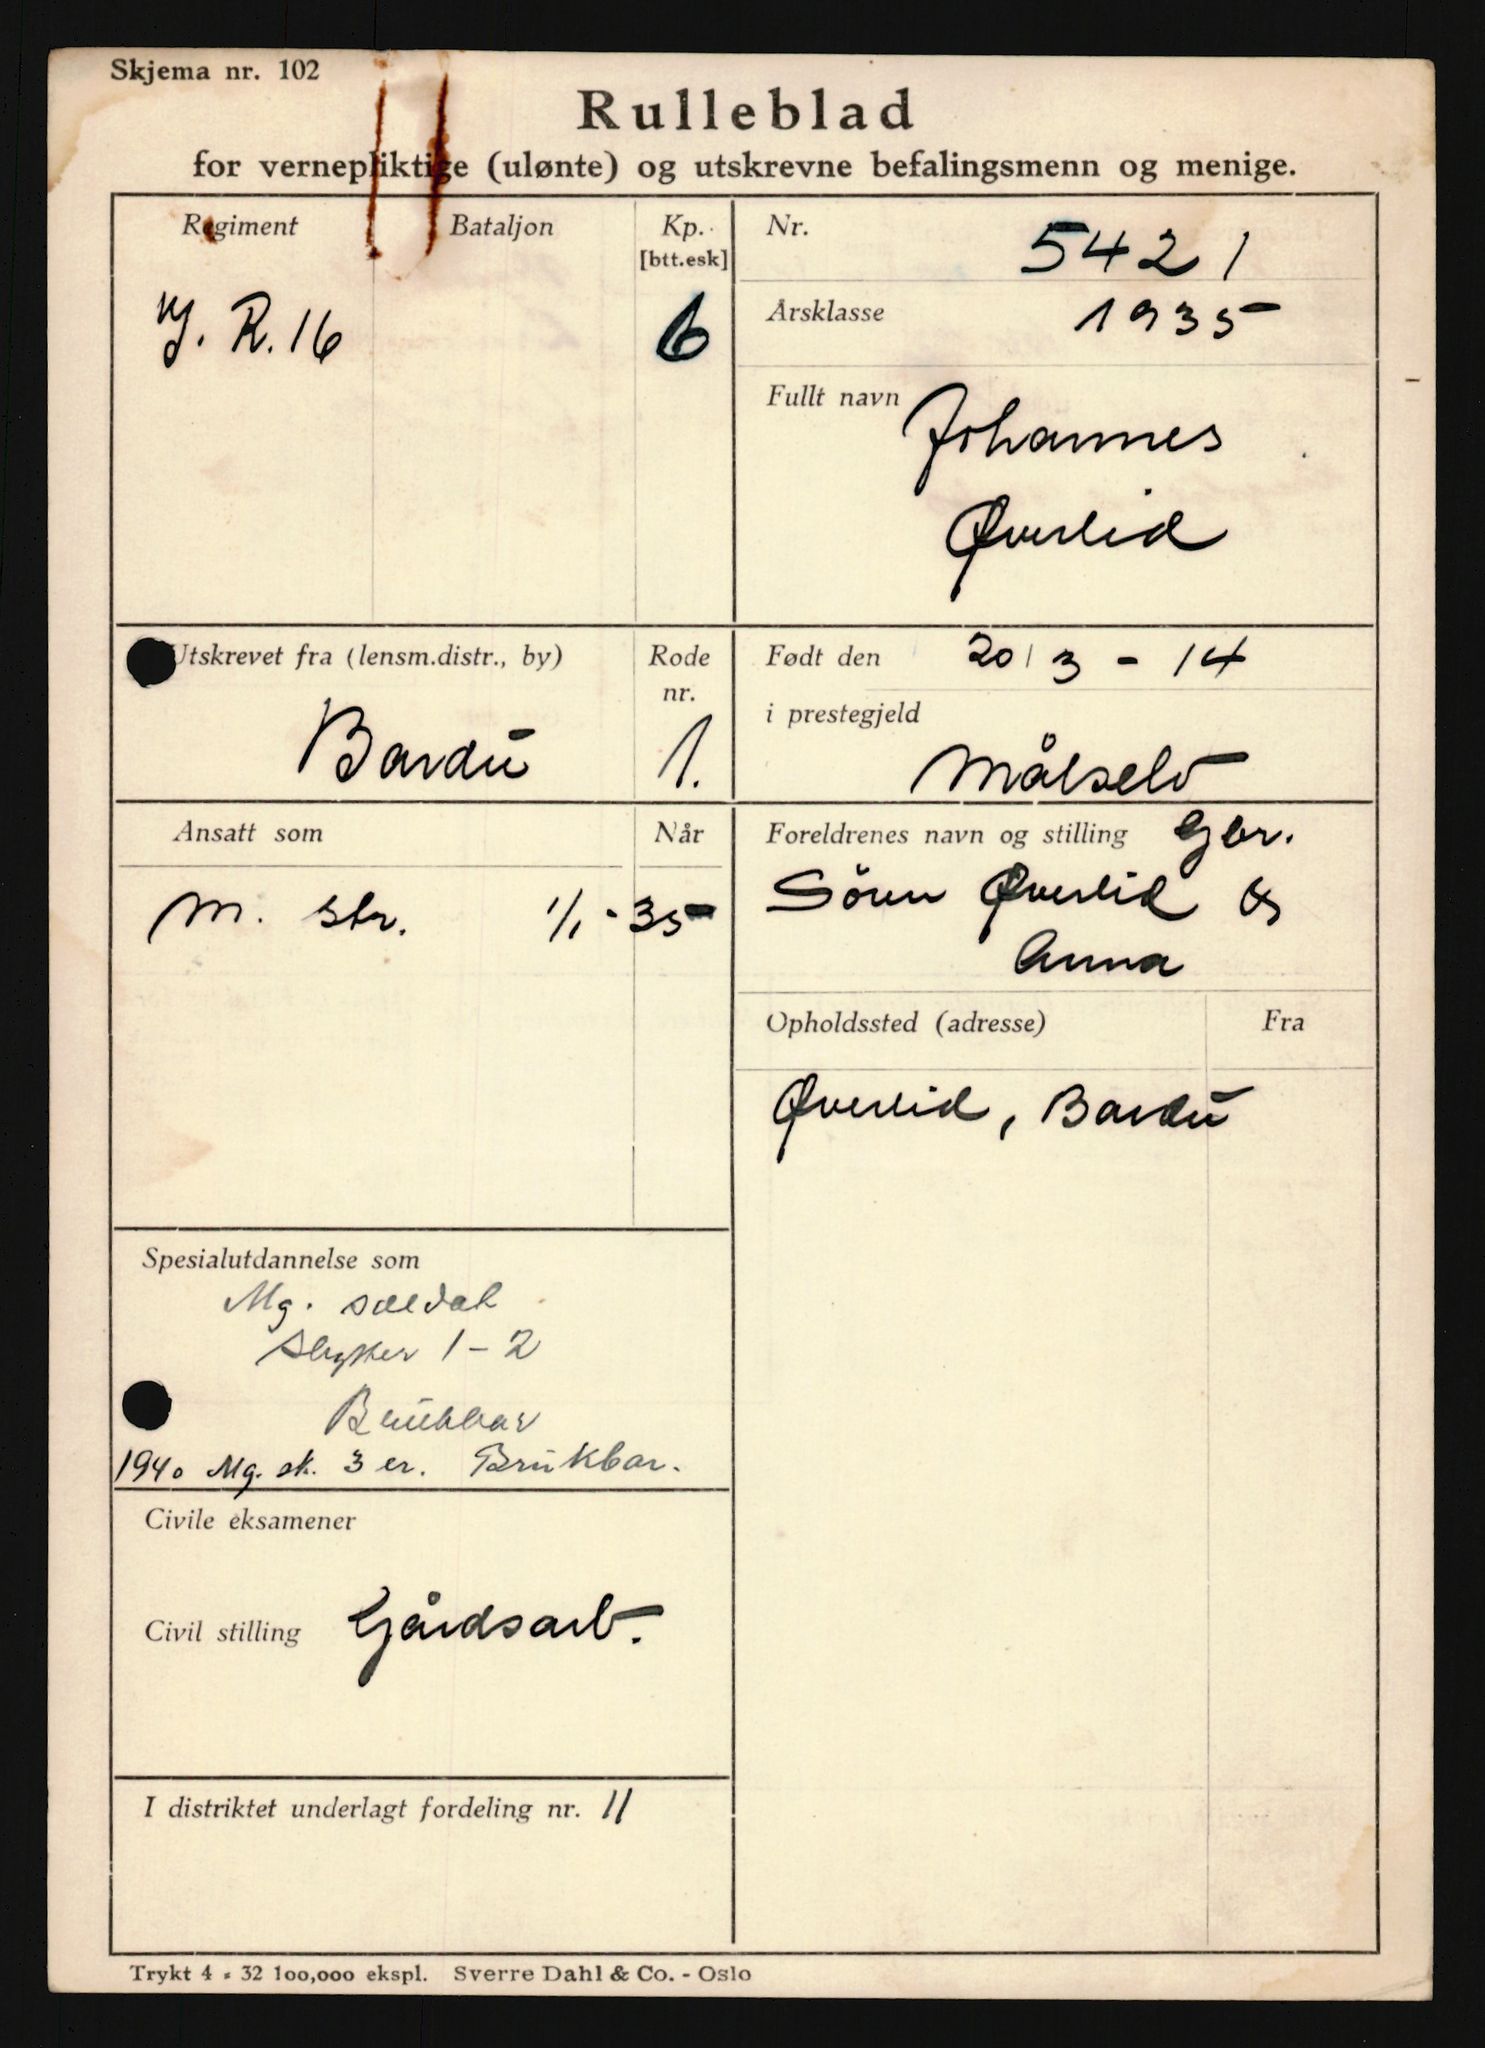 Skjema nr. 102
Rulleblad
for vernepliktige (ulønte) og utskrevne befalingsmenn og menige.
Regiment
Bataljon
Kp.
[btt.esk]
I. R. 16
6
Nr.
5421
Årsklasse
1935
Fullt navn
Johannes
Øverlid
Utskrevet fra (lensm.distr., by)
Rode
nr.
Bardu
1.
Født den 20/3 - 14
i prestegjeld
Målselv
Ansatt som
Når
M. str. 1/1 - 35
Foreldrenes navn og stilling Gbr.
Sören Øverlid &
Anna
Opholdssted (adresse)
Fra
Øverlid, Bardu
Spesialutdannelse som
Mg. soldat
Skytter 1 - 2
Brukbar
1940 Mg. sk. 3 er. Brukbar.
Civile eksamener
Civil stilling Gårdsarb.
I distriktet underlagt fordeling nr. 11
Trykt 4 - 32 100,000 ekspl. Sverre Dahl & Co. - Oslo